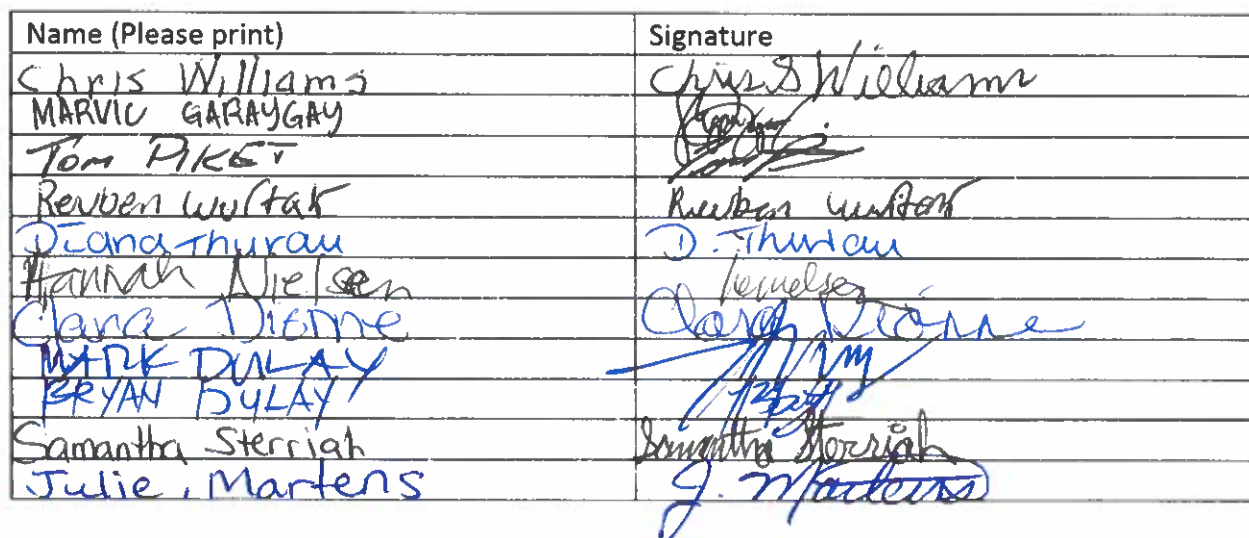 Name (Please print) Signature
Chris Williams Chris S Williams
MARVIC GARAYGAY
TOM PIKET
Reuben Wurtak Reuben Wurtak
Diana Thurau D. Thurau
Hannah Nielsen
Clara Dionne Clara Dionne
MARK DULAY
BRYAN DULAY
Samantha Sterriah Samantha Sterriah
Julie, Martens J. Martens